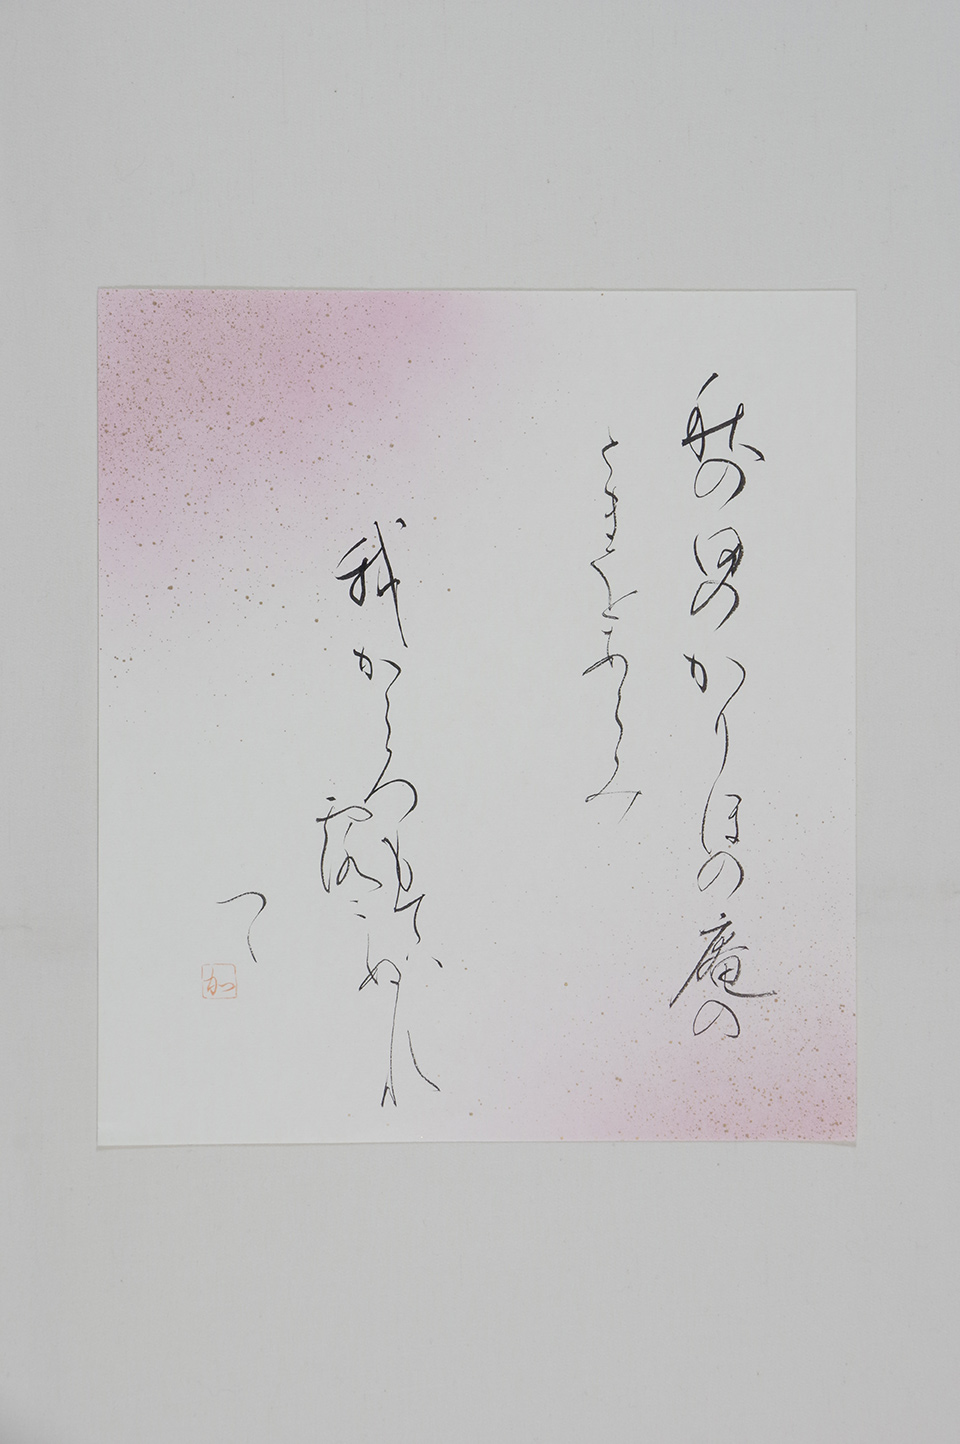 秋の田のかりほの庵の
とまをあらみ
我かころもてハ
露ニぬれ
つゝ